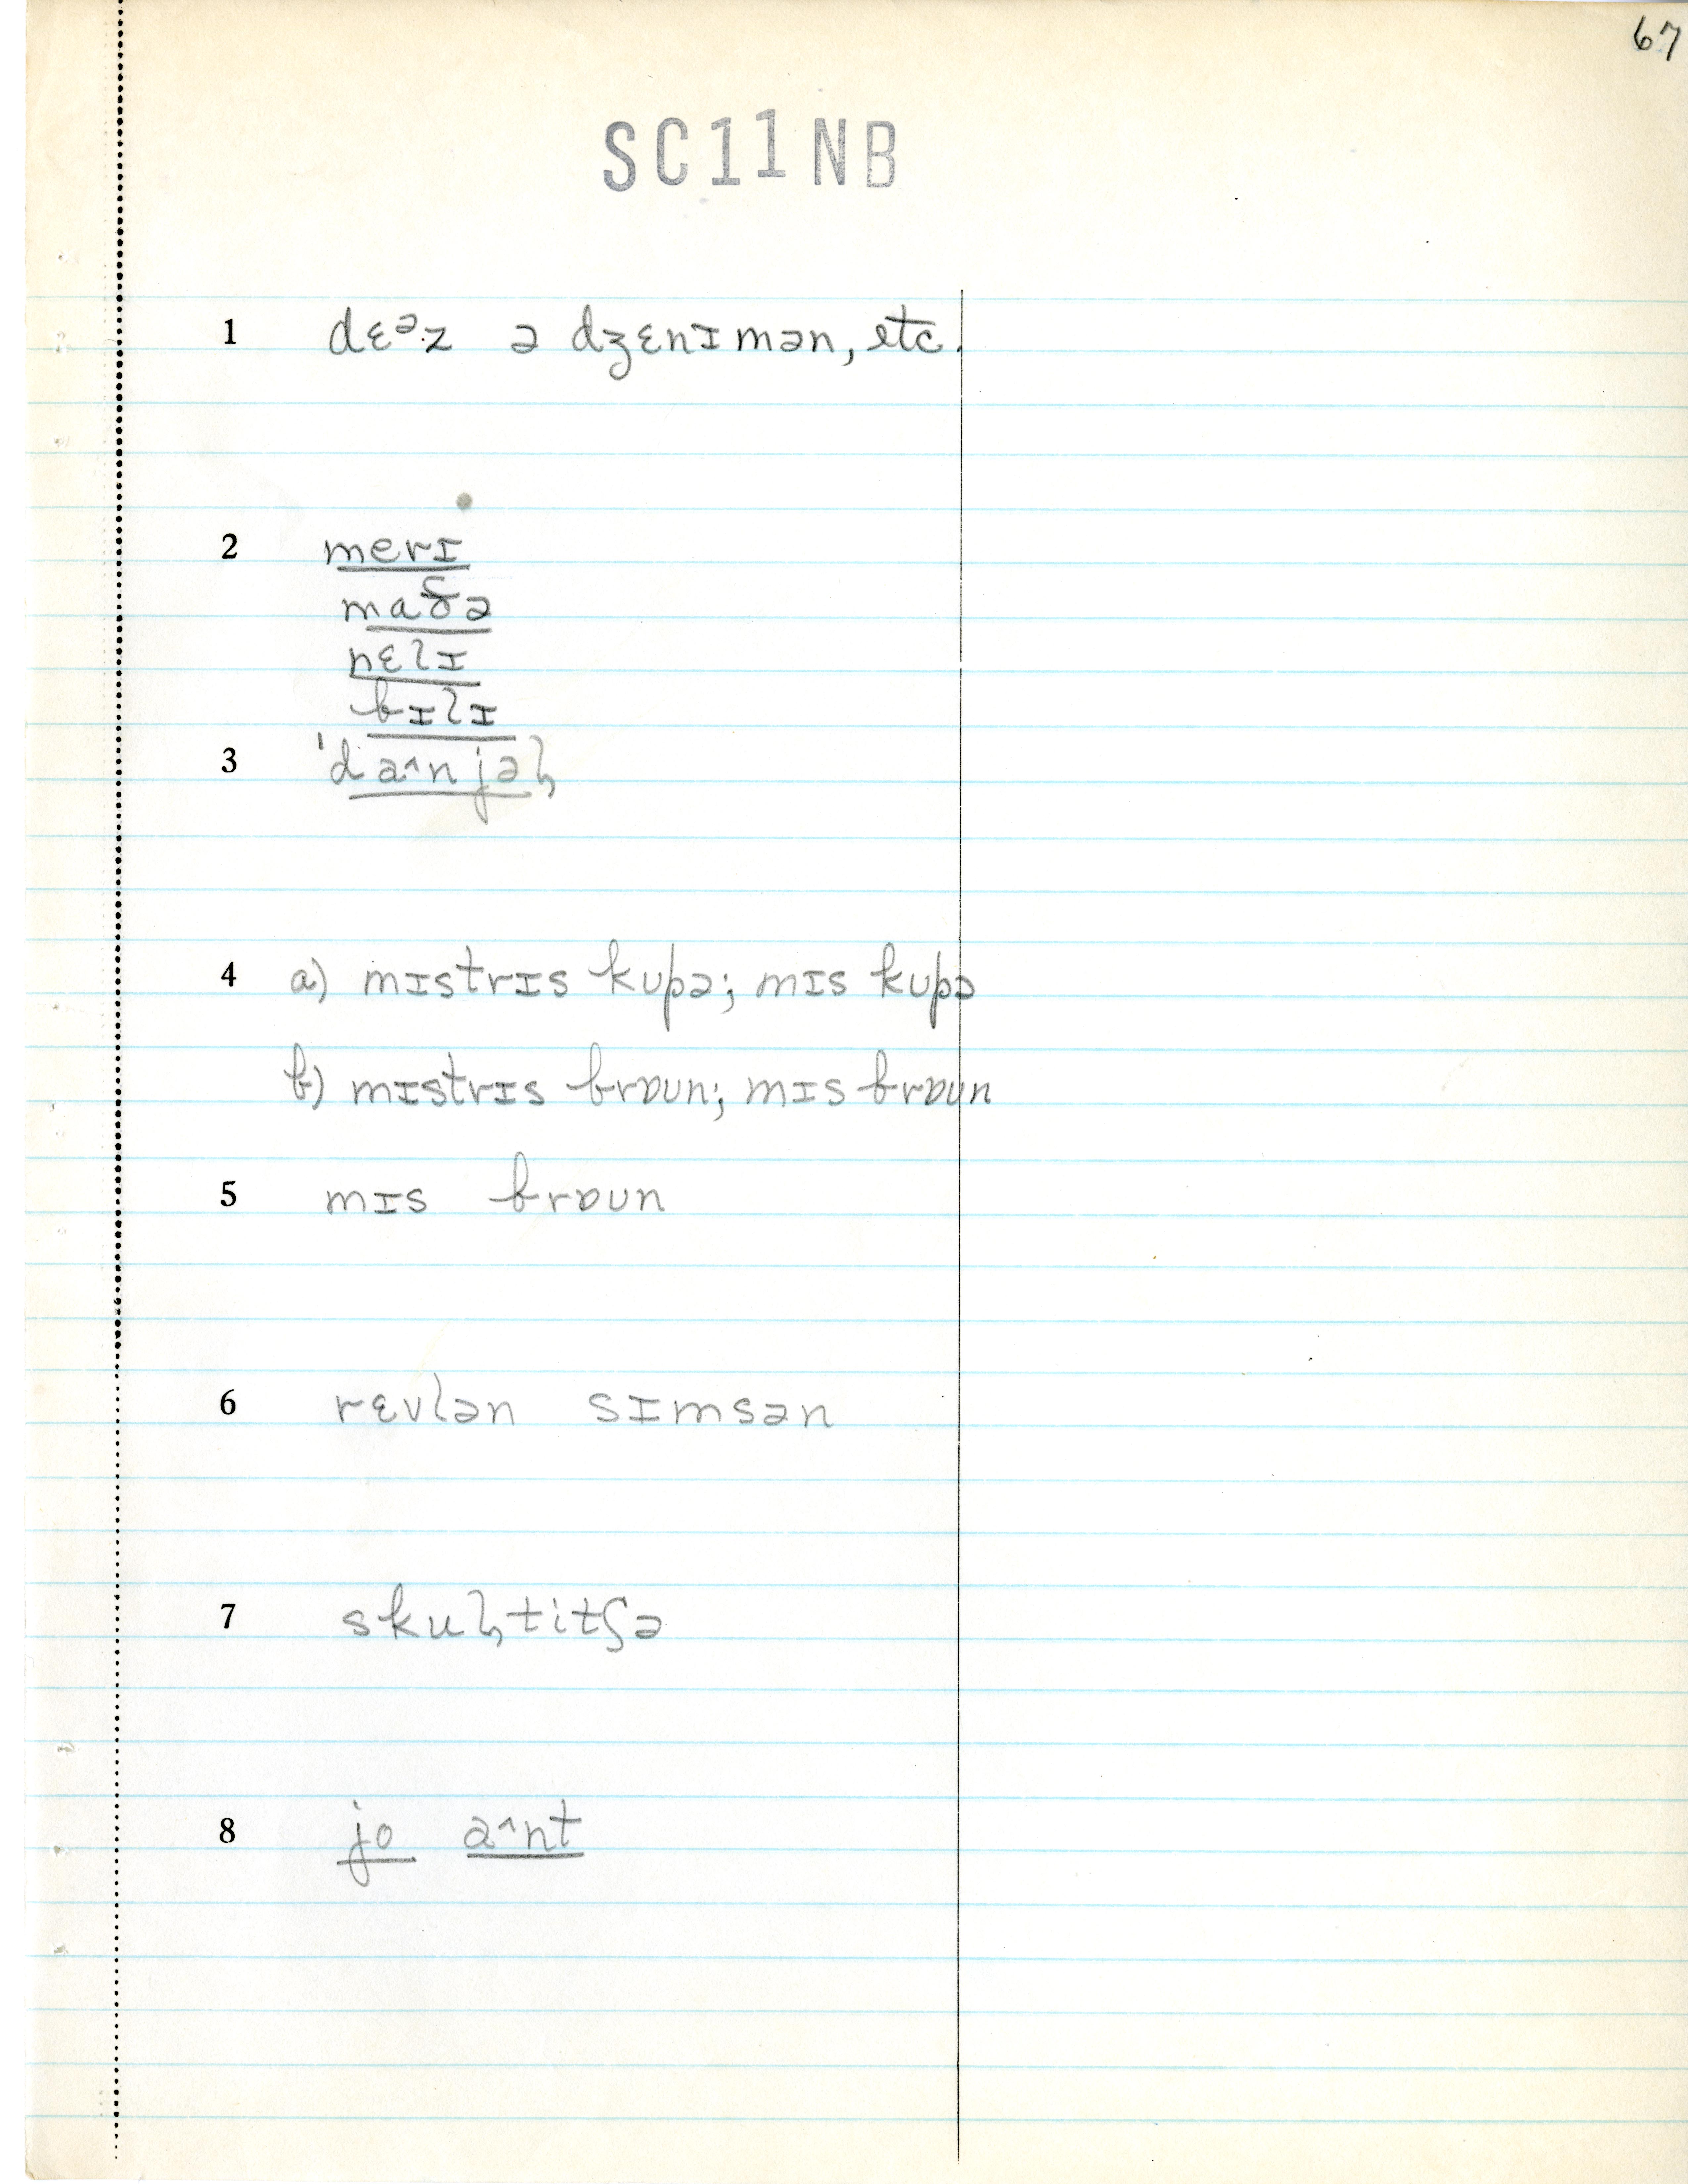 67
SC11NB
1 dɛᵊz ə dʒɛnɪmən, etc.
2 merɪ
maðə
nɛlɪ
bɪlɪ
3 ˈda^njəl̡
4 a) mɪstrɪs kupə; mɪs kupə
b) mɪstrɪs brɒun; mɪs brɒun
5 mɪs brɒun
6 rɛvlən sɪmsən
7 skul̡titʃə
8 jo a^nt